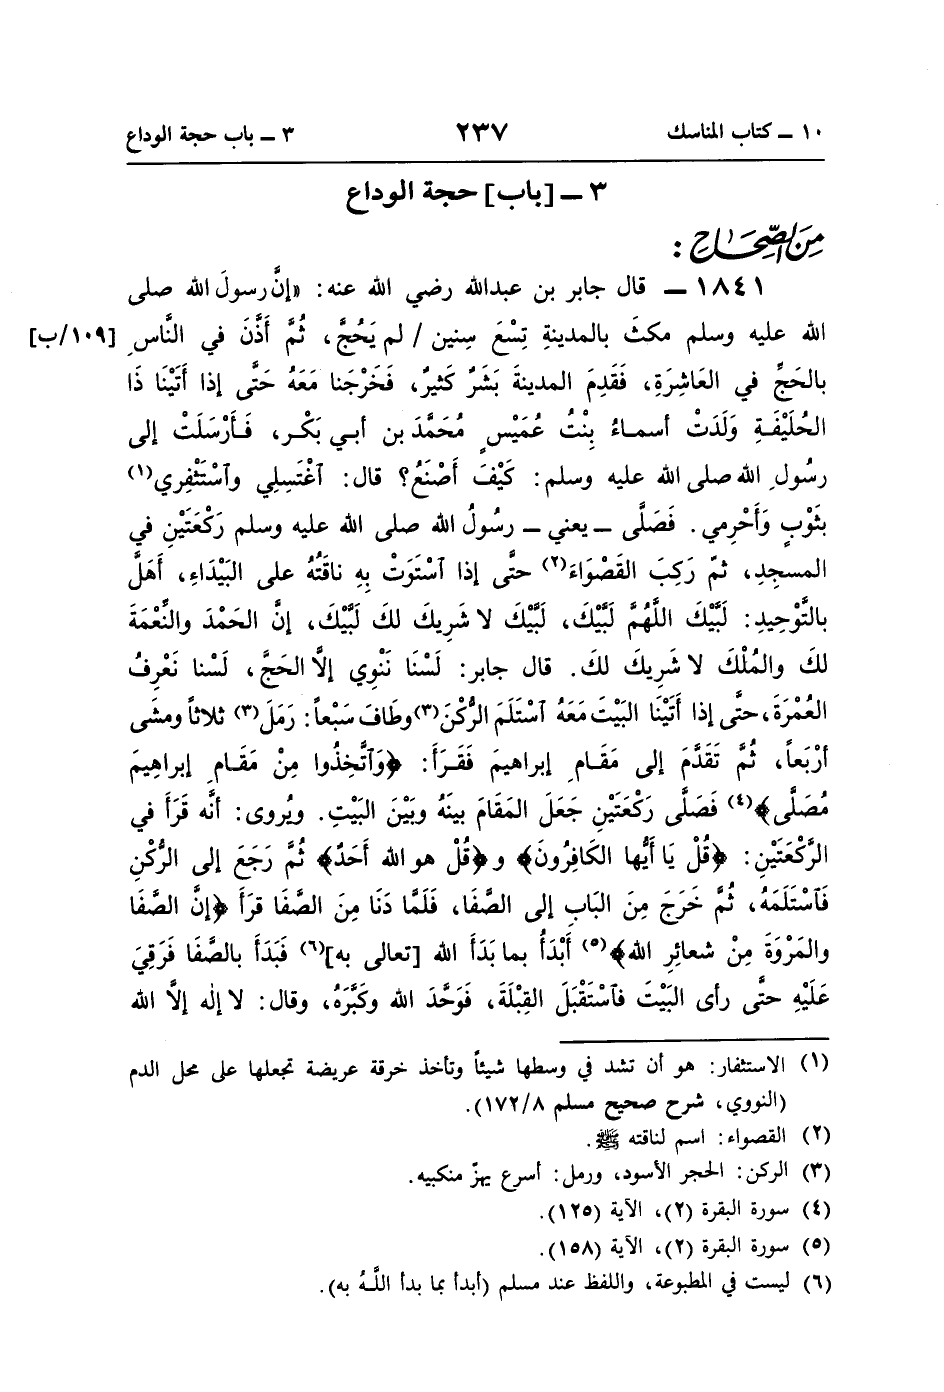 ١٠ ـ كتاب المناسك ٢٣٧ ٣ ـ باب حجة الوداع
٣ ـ [باب] حجة الوداع
مِنَ الصِّحَاحِ :
١٨٤١ ـ قال جابر بن عبدالله رضي الله عنه: «إنَّ رسولَ الله صلى
الله عليه وسلم مكثَ بالمدينةِ تِسْعَ سِنين / لم يَحُجَّ، ثُمَّ أَذَّنَ في النَّاسِ [١٠٩/ب]
بالحَجِّ في العَاشِرَةِ، فَقَدِمَ المدينةَ بَشَرٌ كَثيرٌ، فَخَرْجنا مَعَهُ حَتَّى إذا أَتَيْنَا ذَا
الحُلَيْفَةِ وَلَدَتْ أسماءُ بِنْتُ عُمَيْسٍ مُحَمَّدَ بن أبي بَكْرٍ، فَأَرْسَلَتْ إلى
رسُولِ الله صلى الله عليه وسلم: كَيْفَ أَصْنَعُ؟ قال: ٱغْتَسِلِي وٱسْتَثْفِري(١)
بثَوْبٍ وَأَحْرِمي. فَصَلَّى ـ يعني ـ رسُولُ الله صلى الله عليه وسلم رَكْعَتَيْنِ في
المسجِدِ، ثمّ رَكِبَ القَصْوَاءَ(٢) حتَّى إذا ٱسْتَوَتْ بِهِ ناقَتُهُ على البَيْدَاءِ، أَهَلَّ
بالتَّوْحِيدِ: لَبَّيْكَ اللَّهُمَّ لَبَّيْكَ، لَبَّيْكَ لا شَرِيكَ لكَ لَبَّيْكَ، إنَّ الحَمْدَ والنِّعْمَةَ
لكَ والمُلْكَ لا شَرِيكَ لكَ. قال جابر: لَسْنَا نَنْوِي إلَّا الحَجَّ، لَسْنا نَعْرِفُ
العُمْرَةَ، حتَّى إذا أَتَيْنَا البَيْتَ مَعَهُ ٱسْتَلَمَ الرُّكْنَ(٣) وطَافَ سَبْعاً: رَمَلَ(٣) ثلاثاً ومشَى
أرْبَعاً، ثُمَّ تَقَدَّمَ إلى مَقَامِ إبراهيمَ فَقَرَأَ: ﴿وَٱتَّخِذُوا مِنْ مَقَامِ إبراهِيمَ
مُصَلَّى﴾(٤) فَصَلَّى رَكْعَتَيْنِ جَعَلَ المَقَامَ بينَهُ وبَيْنَ البَيْتِ. ويُروى: أنَّه قَرَأَ في
الرَّكْعَتَيْنِ: ﴿قُلْ يَا أَيُّها الكَافِرُونَ﴾ و ﴿قُلْ هو الله أَحَدٌ﴾ ثُمَّ رَجَعَ إلى الرُّكْنِ
فَٱسْتَلَمَهُ، ثُمَّ خَرَجَ مِنَ البَابِ إلى الصَّفَا، فَلَمَّا دَنَا مِنَ الصَّفَا قرَأَ ﴿إنَّ الصَّفَا
والمَرْوَةَ مِنْ شعائِرِ الله﴾(٥) أَبْدَأُ بما بَدَأَ الله [تعالى به](٦) فَبَدَأَ بالصَّفَا فَرَقِيَ
عَلَيْهِ حتَّى رأى البَيْتَ فٱسْتَقْبَلَ القِبْلَةَ، فَوَحَّدَ الله وكَبَّرَهُ، وقال: لا إلٰه إلَّا الله
(١) الاستثفار: هو أن تشد في وسطها شيئاً وتأخذ خرقة عريضة تجعلها على محل الدم
(النووي، شرح صحيح مسلم ١٧٢/٨).
(٢) القصواء: اسم لناقته ﷺ.
(٣) الركن: الحجر الأسود، ورمل: أسرع يهزّ منكبيه.
(٤) سورة البقرة (٢)، الآية (١٢٥).
(٥) سورة البقرة (٢)، الآية (١٥٨).
(٦) ليست في المطبوعة، واللفظ عند مسلم (أبدأ بما بدأ اللَّهُ به).